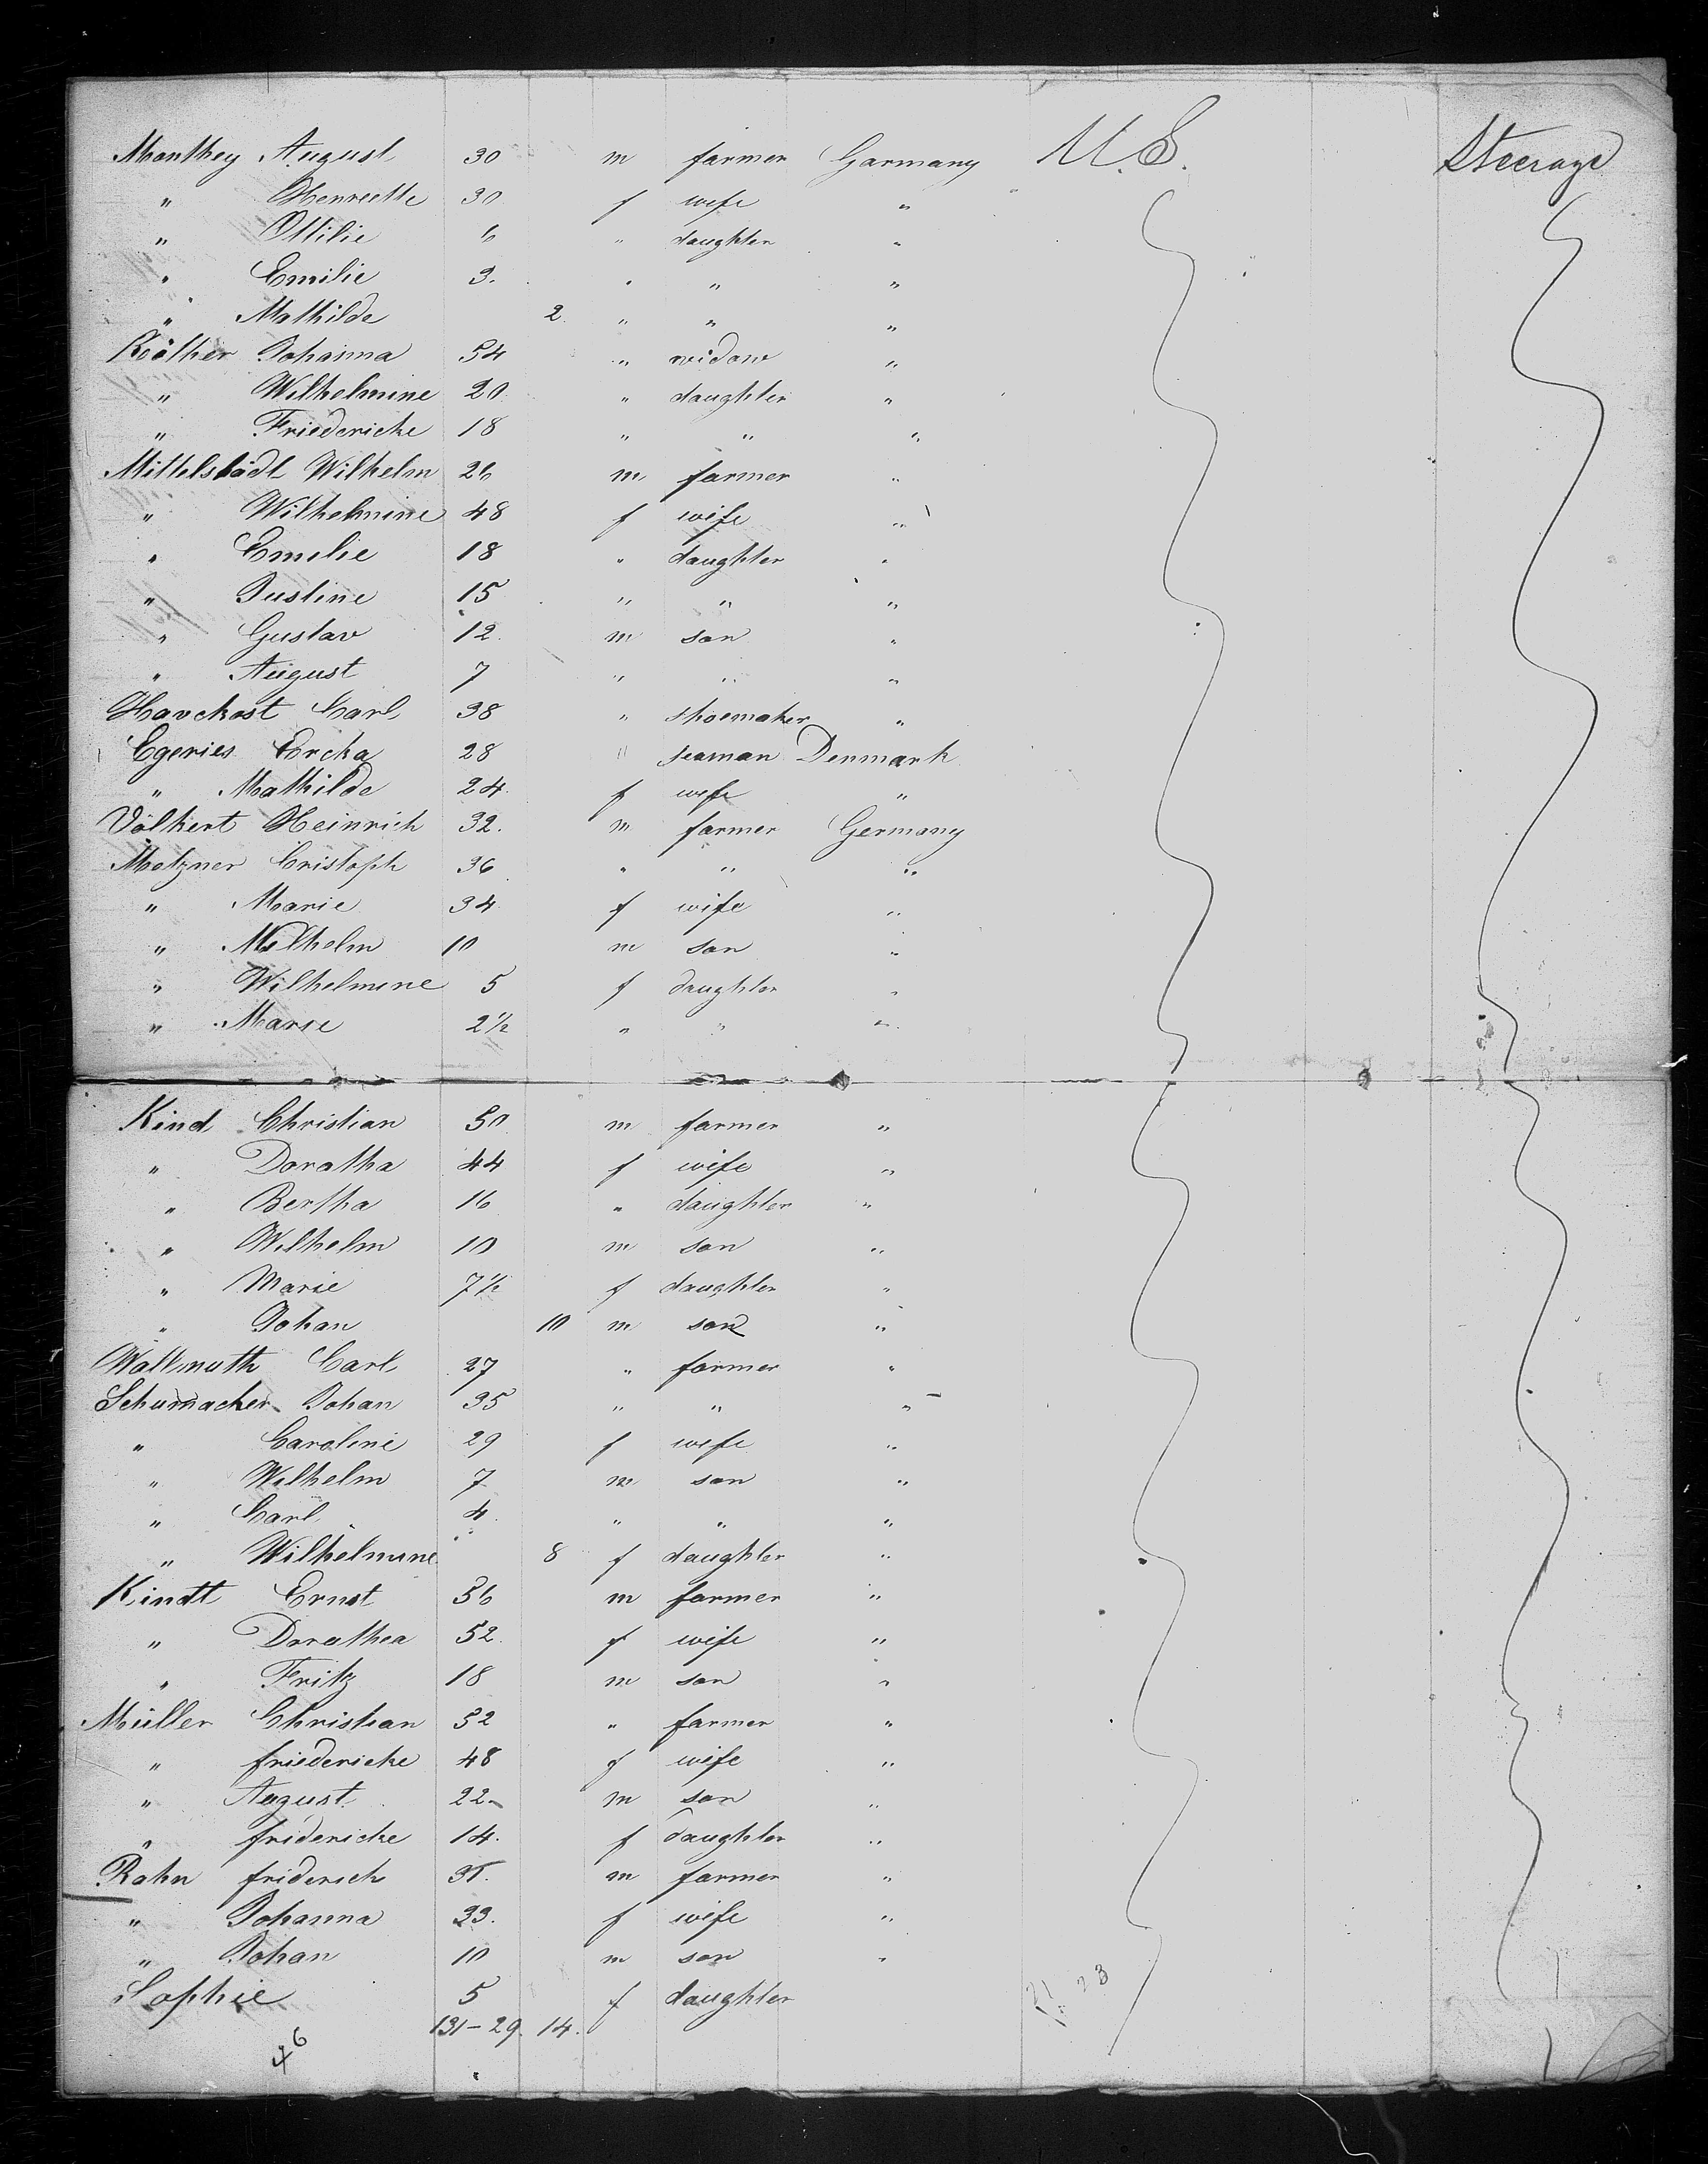 Manthey August 30 m farmer Garmany U.S. Steerage
" Henreette 30 f wife "
" Ottilie 6 " daughter "
" Emilie 3. " " "
" Mathilde 2 " " "
Röther Johanna 54 " widow "
" Wilhelmine 20 " daughter "
" Friedericke 18 " " "
Mittelstädt Wilhelm 26 m farmer "
" Wilhelmine 48 f wife "
" Emilie 18 " daughter "
" Justine 15 " " "
" Gustav 12 m son "
" August 7 " " "
Havekost Carl 38 " shoemaker "
Egeries Ercka 28 " seaman Denmark
" Mathilde 24. f wife "
Völkert Heinrich 32. m farmer Germany
Metzner Cristoph 36 " " "
" Marie 34 f wife "
" Wilhelm 10 m son "
" Wilhelmine 5 f daughter "
" Marie 2½ " " "
Kind Christian 50 m farmer "
" Doratha 44 f wife "
" Bertha 16 " daughter "
" Wilhelm 10 m son "
" Marie 7½ f daughter "
" Johan 10 m son "
Wallmuth Carl 27 " farmer "
Schumacher Johan 35 " " "
" Caroline 29 f wife "
" Wilhelm 7 m son "
" Carl 4 " " "
" Wilhelmine 8 f daughter "
Kindt Ernst 56 m farmer "
" Dorathea 52 f wife "
" Fritz 18 m son "
Müller Christian 52 " farmer "
" friedericke 48 f wife "
" August 22 m son "
" fridericke 14. f daughter "
Rahn friderich 35. m farmer "
" Johanna 33. f wife "
" Johan 10 m son "
Sophie 5 f daughter
131-29. 14.
46